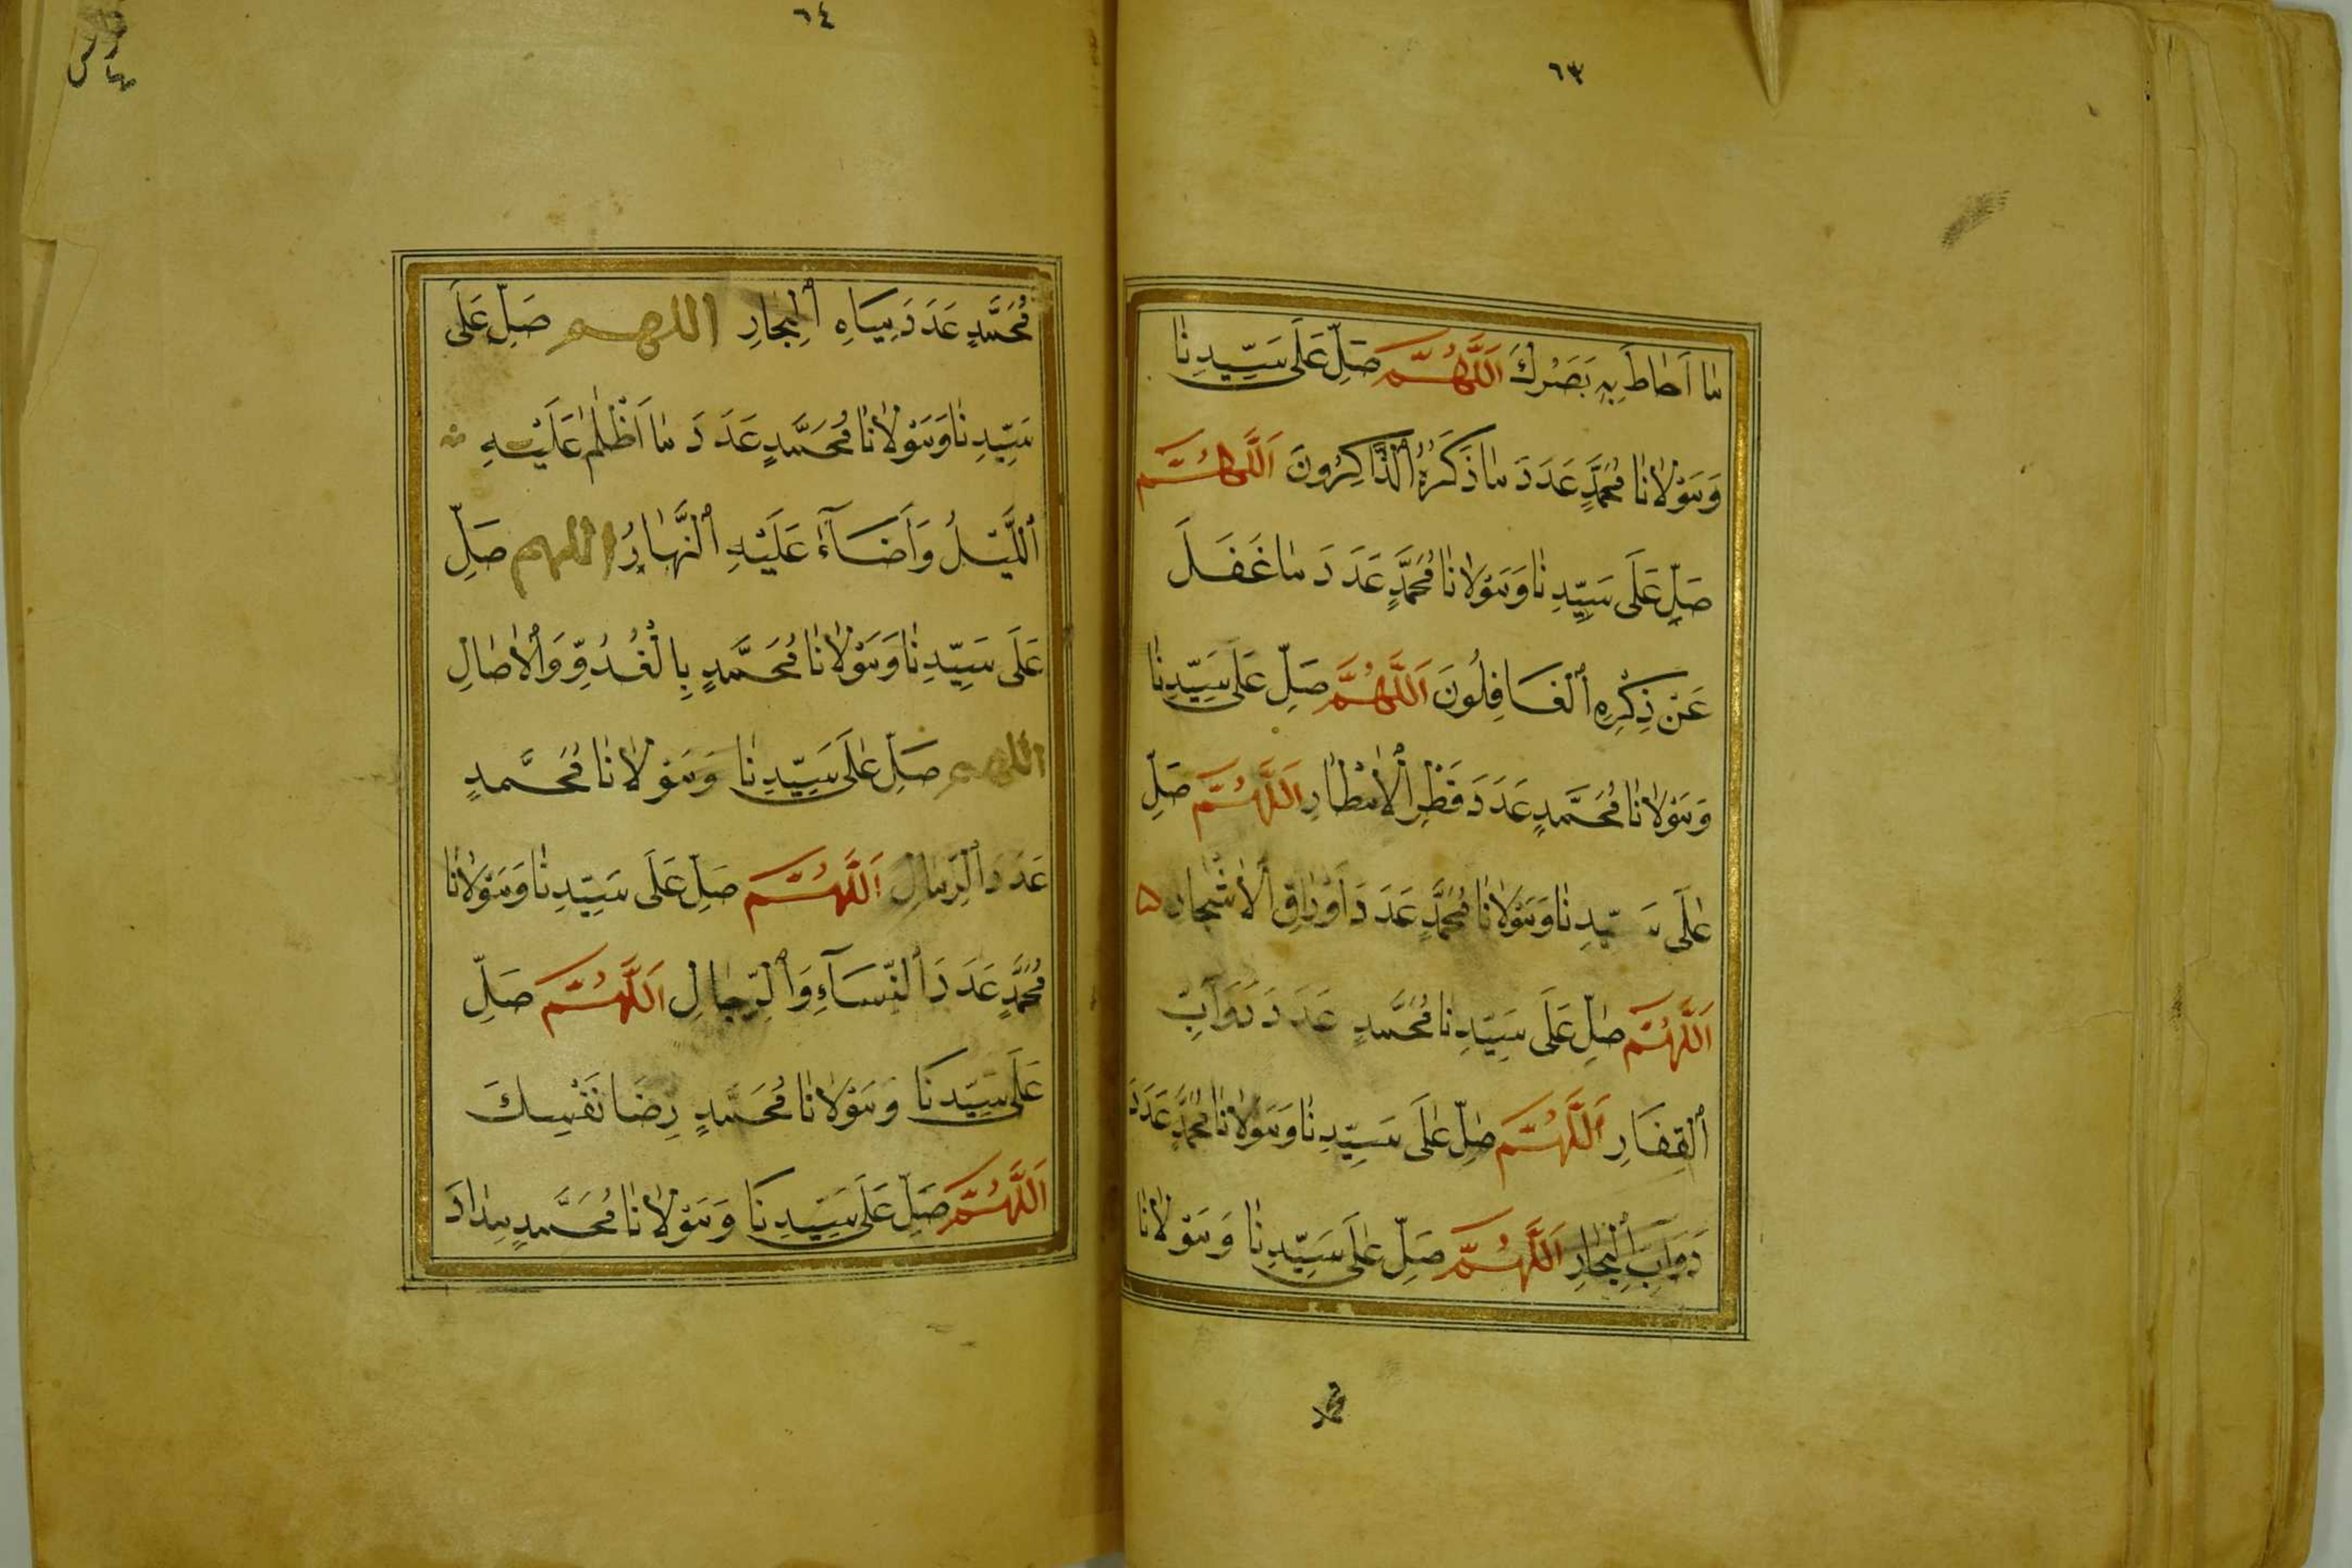 ٦٣
مَا اَحَاطَ بِهِ بَصَرُكَ اَللَّهُمَّ صَلِّ عَلَى سَيِّدِنَا
وَمَوْلَانَا مُحَمَّدٍ عَدَدَ مَا ذَكَرَهُ ٱلذَّاكِرُونَ اَللَّهُمَّ
صَلِّ عَلَى سَيِّدِنَا وَمَوْلَانَا مُحَمَّدٍ عَدَدَ مَا غَفَلَ
عَنْ ذِكْرِهِ ٱلْغَافِلُونَ اَللَّهُمَّ صَلِّ عَلَى سَيِّدِنَا
وَمَوْلَانَا مُحَمَّدٍ عَدَدَ قَطْرِ ٱلْأَمْطَارِ اَللَّهُمَّ صَلِّ
عَلَى سَيِّدِنَا وَمَوْلَانَا مُحَمَّدٍ عَدَدَ أَوْرَاقِ ٱلْأَشْجَارِ ۵
اَللَّهُمَّ صَلِّ عَلَى سَيِّدِنَا مُحَمَّدٍ عَدَدَ دَوَآبِّ
ٱلْقِفَارِ اَللَّهُمَّ صَلِّ عَلَى سَيِّدِنَا وَمَوْلَانَا مُحَمَّدٍ عَدَدَ
دَوَآبِّ ٱلْبِحَارِ اَللَّهُمَّ صَلِّ عَلَى سَيِّدِنَا وَمَوْلَانَا
٦٤
مُحَمَّدٍ عَدَدَ مِيَاهِ ٱلْبِحَارِ اللهم صَلِّ عَلَى
سَيِّدِنَا وَمَوْلَانَا مُحَمَّدٍ عَدَدَ مَا اَظْلَمَ عَلَيْهِ
ٱللَّيْلُ وَاَضَآءَ عَلَيْهِ ٱلنَّهَارُ اللهم صَلِّ
عَلَى سَيِّدِنَا وَمَوْلَانَا مُحَمَّدٍ بِالْغُدُوِّ وَٱلْأٰصَالِ
اللهم صَلِّ عَلَى سَيِّدِنَا وَمَوْلَانَا مُحَمَّدٍ
عَدَدَ ٱلرِّمَالِ اَللَّهُمَّ صَلِّ عَلَى سَيِّدِنَا وَمَوْلَانَا
مُحَمَّدٍ عَدَدَ ٱلنِّسَآءِ وَٱلرِّجَالِ اَللَّهُمَّ صَلِّ
عَلَى سَيِّدِنَا وَمَوْلَانَا مُحَمَّدٍ رِضَا نَفْسِكَ
اَللَّهُمَّ صَلِّ عَلَى سَيِّدِنَا وَمَوْلَانَا مُحَمَّدٍ مِدَادَ